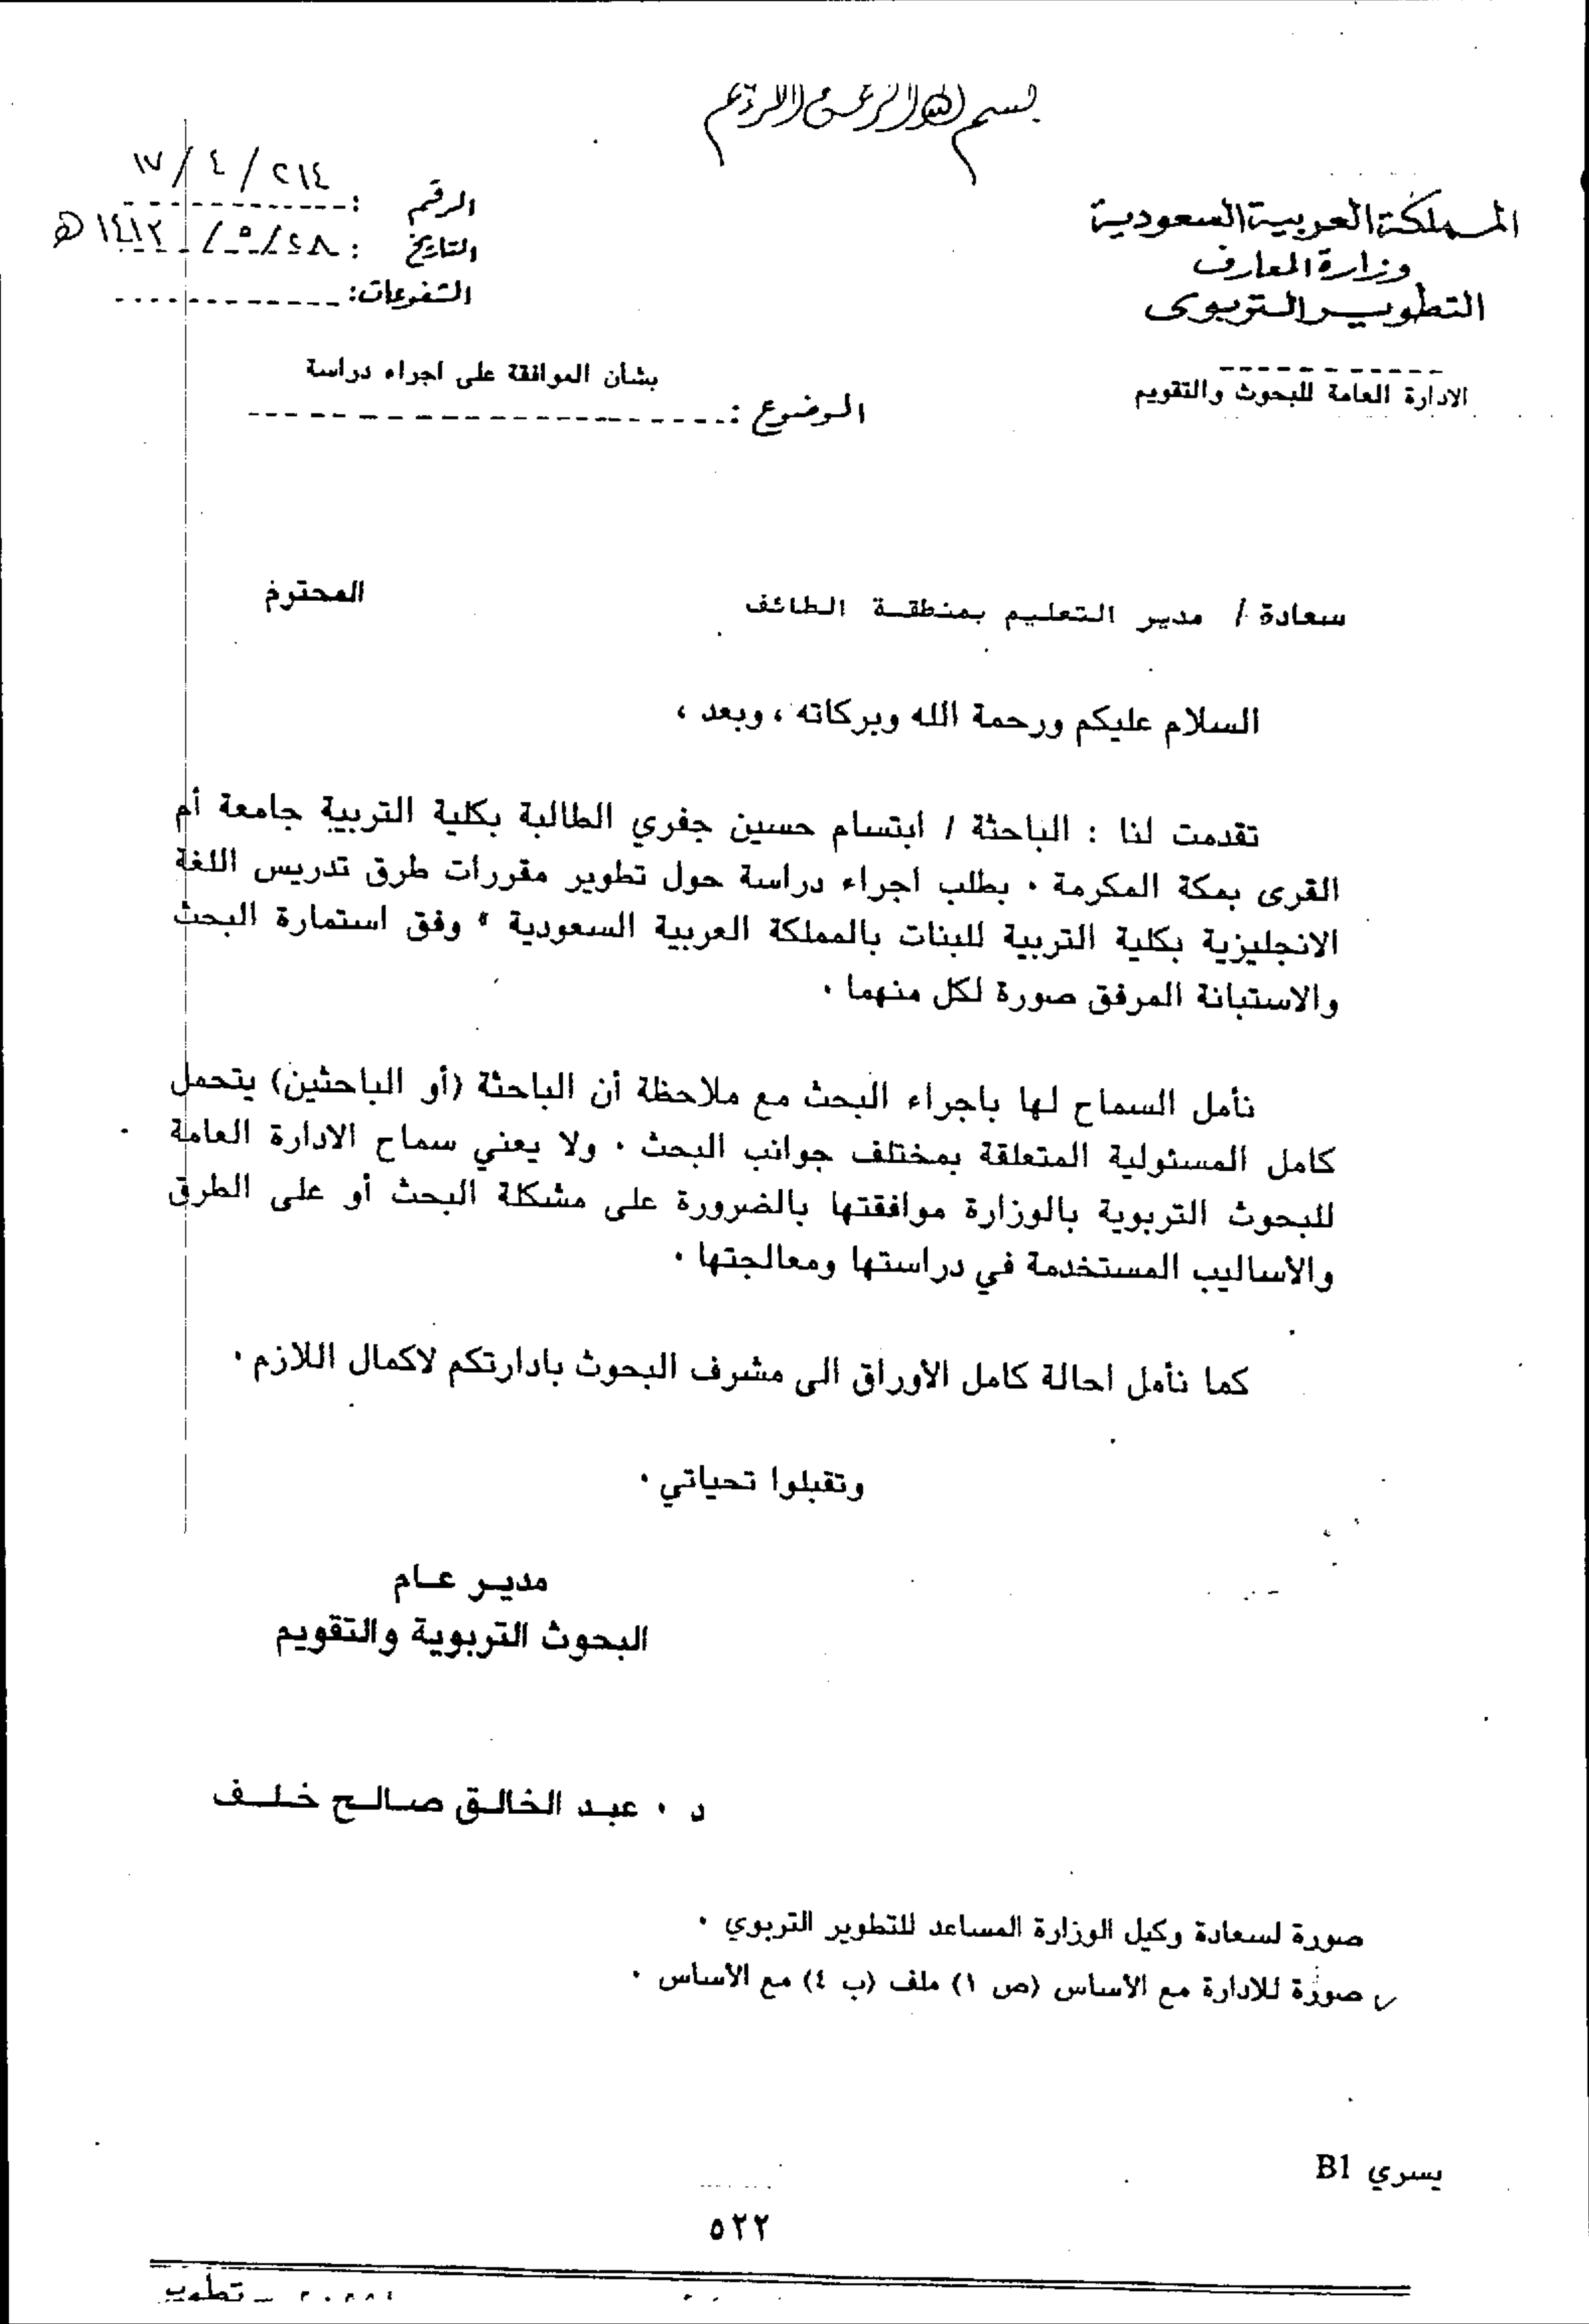 بسم الله الرحمن الرحيم
المملكة العربية السعودية
وزارة المعارف
التطوير التربوى
الادارة العامة للبحوث والتقويم
الرقم : ٢١٤ / ٤ / ١٧
التاريخ : ٢٨ / ٥ / ١٤١٢ هـ
الموضوع : بشأن الموافقة على اجراء دراسة
سعادة / مدير التعليم بمنطقة الطائف المحترم
السلام عليكم ورحمة الله وبركاته ، وبعد ،
تقدمت لنا : الباحثة / ابتسام حسين جفري الطالبة بكلية التربية جامعة أم
القرى بمكة المكرمة ٠ بطلب اجراء دراسة حول تطوير مقررات طرق تدريس اللغة
الانجليزية بكلية التربية للبنات بالمملكة العربية السعودية " وفق استمارة البحث
والاستبانة المرفق صورة لكل منهما ٠
نأمل السماح لها باجراء البحث مع ملاحظة أن الباحثة (أو الباحثين) يتحمل
كامل المسئولية المتعلقة بمختلف جوانب البحث ٠ ولا يعني سماح الادارة العامة
للبحوث التربوية بالوزارة موافقتها بالضرورة على مشكلة البحث أو على الطرق
والأساليب المستخدمة في دراستها ومعالجتها ٠
كما نأمل احالة كامل الأوراق الى مشرف البحوث بادارتكم لاكمال اللازم ٠
وتقبلوا تحياتي ٠
مدير عام
البحوث التربوية والتقويم
د ٠ عبد الخالق صالح خلف
صورة لسعادة وكيل الوزارة المساعد للتطوير التربوي ٠
صورة للادارة مع الأساس (ص ١) ملف (ب ٤) مع الأساس ٠
يسري B1
٥٢٢